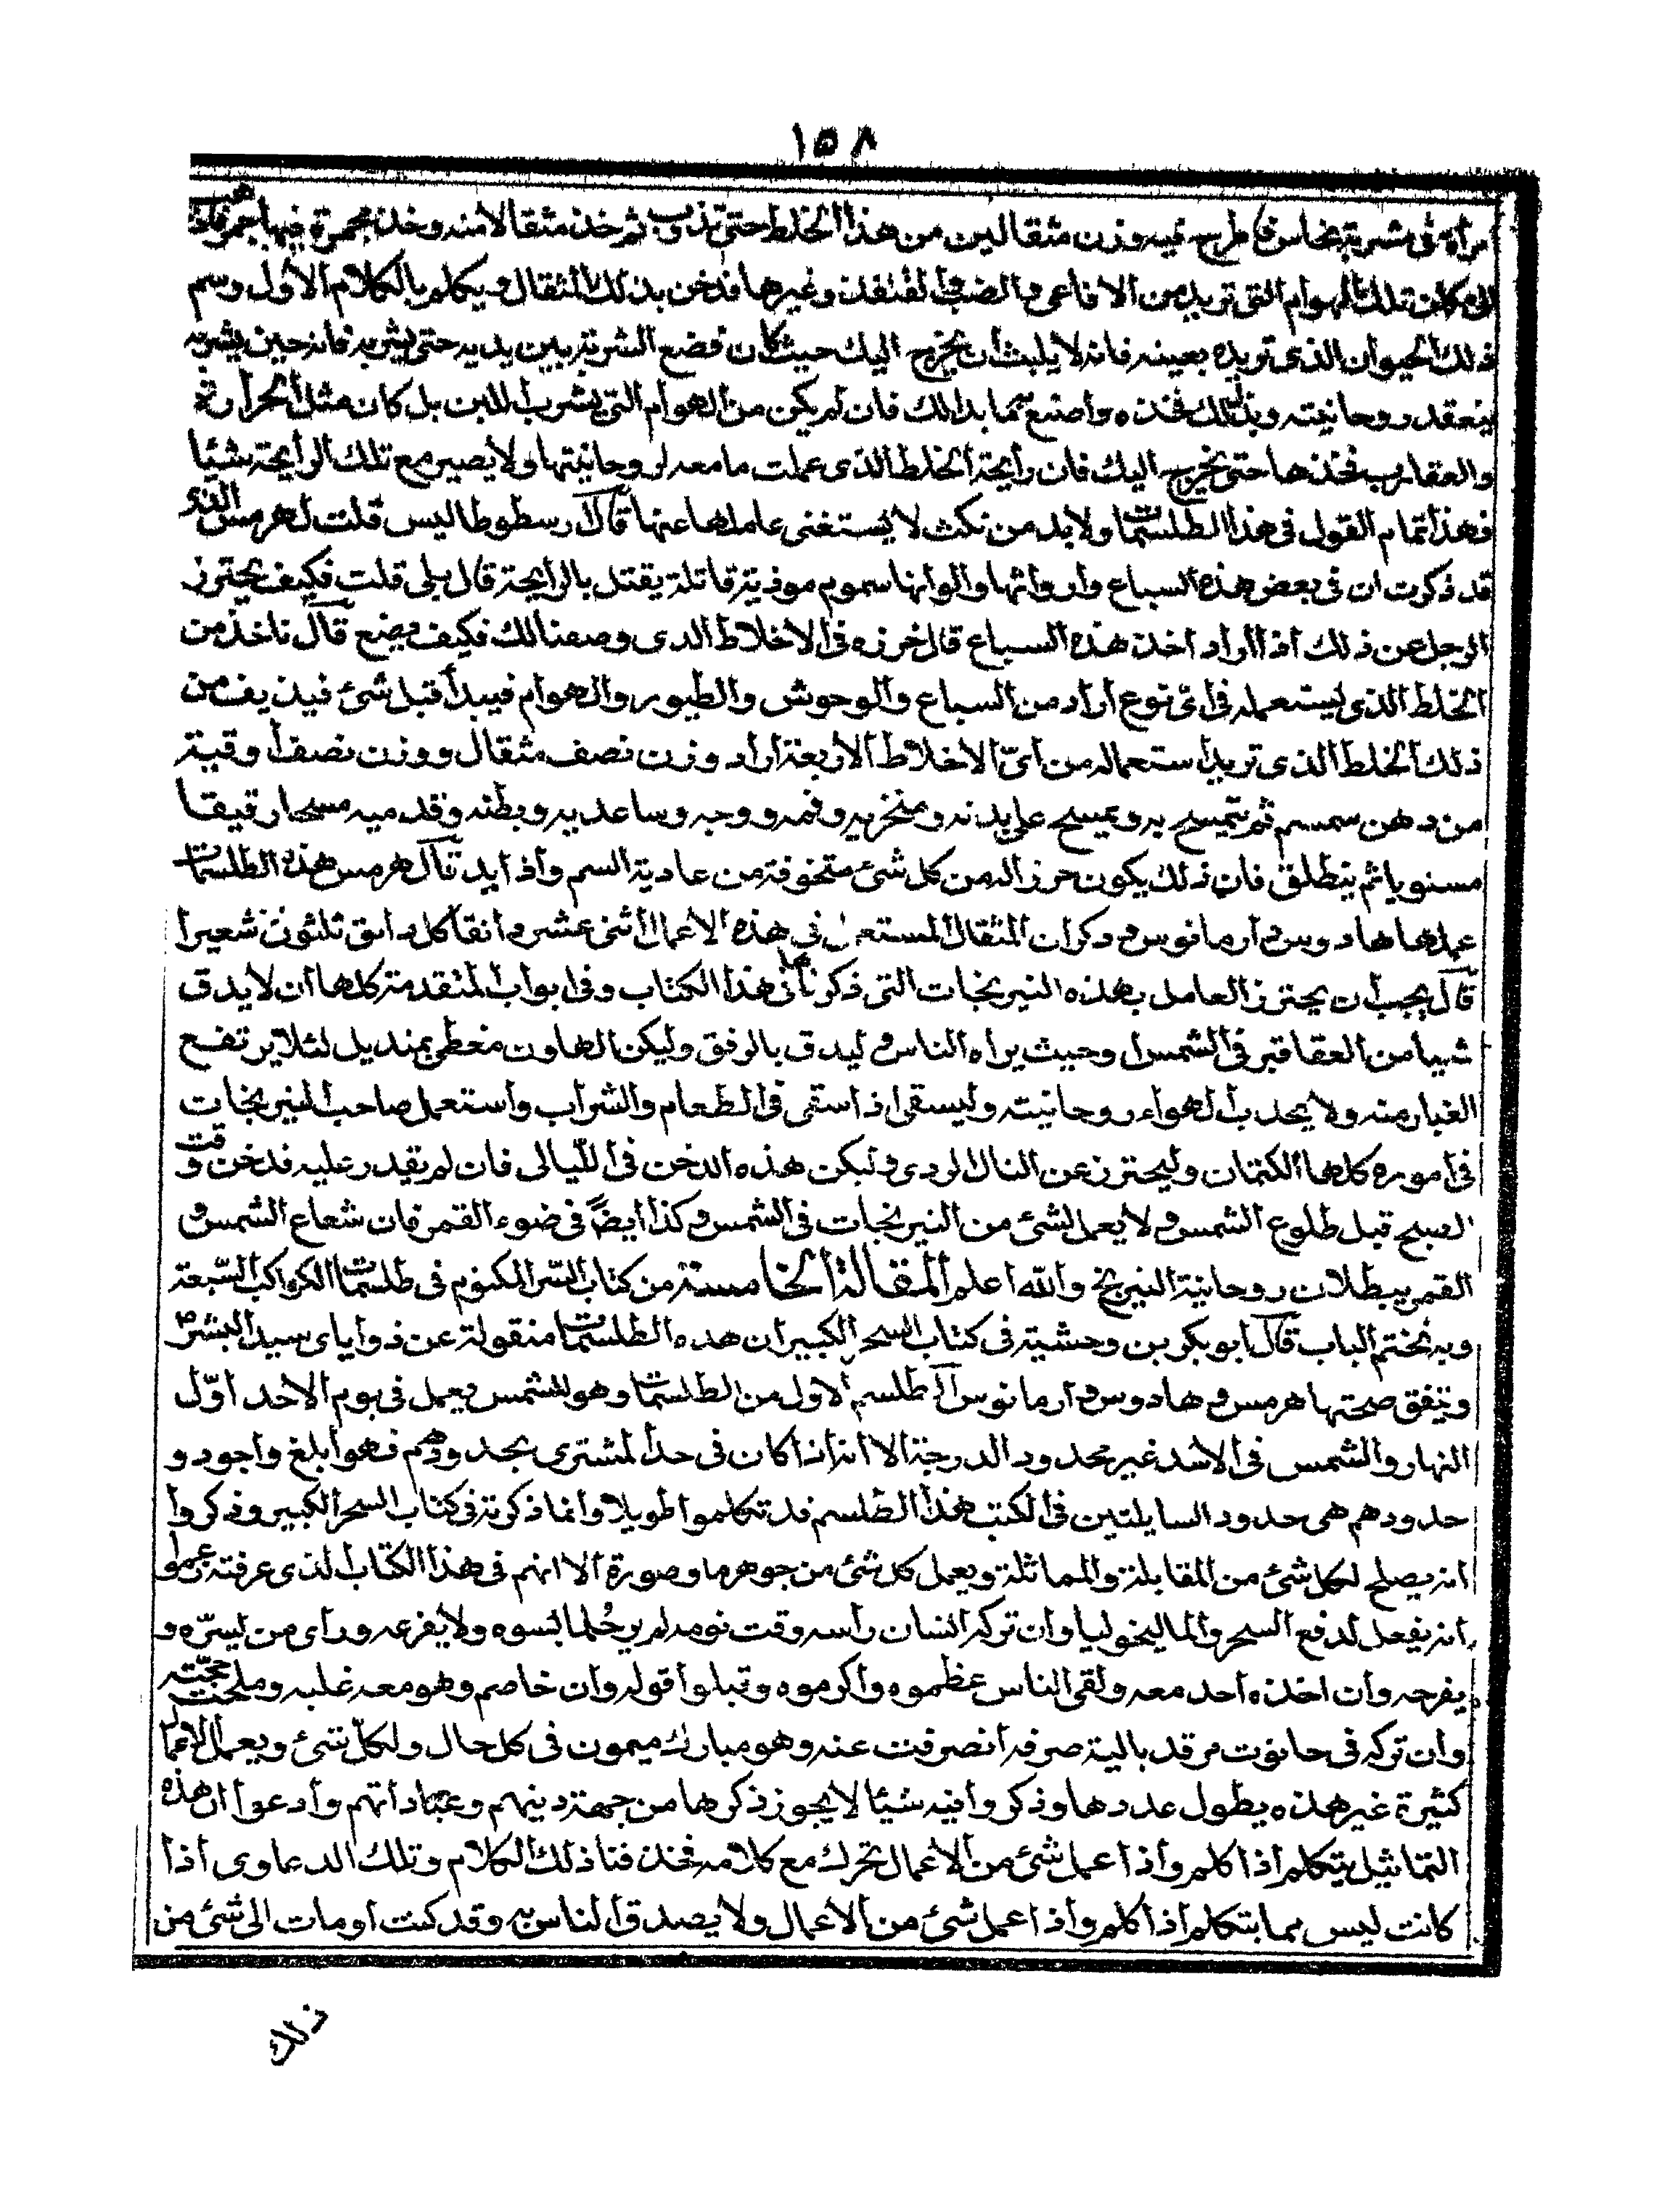 ١٥٨
مرأة في شربة نحاس فاطرح فيه وزن مثقالين من هذا الخلط حتى تذوب ثم خذ مثقالا منه وخذ مجمرة فيها جمر
الى مكان تلك الهوام التى تريد من الافاعى والضب والقنفذ وغيرها فدخن بذلك المثقال ويكلم بالكلام الأول وسم
ذلك الحيوان الذى تريده بعينه فانه لا يلبث أن يخرج اليك حيث كان فضع الشربة بين يديه حتى يشربه فانه حين يشربه
ينعقد روحانيته وبذلك فخذه واصنع بما بدالك فان لم يكن من الهوام التى يشرب اللبن بل كان مثل الحرارة
والعقارب فخذها حتى يخرج اليك فان رأيحة الخلط الذى عملت ما معه لروحانيتها ولا يصبر مع تلك الرايحة شيئا
فهذا تمام القول في هذا الطلسمات ولابد من نكث لا يستغنى عاملها عنها قال ارسطوطاليس قلت لهرمس الذى
قد ذكرت ان في بعض هذه السباع وارواثها والوانها سموم موذية قاتلة يقتل بالرايحة قال بلى قلت فكيف يحترز
الرجل عن ذلك اذا اراد اخذ هذه السباع قال خرزه فى الاخلاط الدى وصفنالك فكيف يصنع قال تاخذ من
الخلط الذى ليستعمله في اى نوع أراد من السباع والوحوش والطيور والهوام فيبدأ قبل شئ فيذيف من
ذلك الخلط الذى تريد استعماله من اىّ الاخلاط الأربعة أراد وزن نصف مثقال ووزن نصف أوقية
من دهن سمسم ثم يتمسح به ويمسح على بدنه ومنخريه وفمه ووجهه وساعديه وبطنه وقدميه مسحا رقيقا
مستويا ثم ينطلق فان ذلك يكون حرزا له من كل شئ متخوفة من عادية السم وأذايه قال هرمس هذه الطلسمات
عملها هادوس و ارمانوس و دكران المثقال المستعمل في هذه الاعمال أثنى عشر دانقا كل دانق ثلثون شعيرا
قال يجب أن يحترز العامل بهذه النيرنجات التى ذكرناها فى هذا الكتاب وفى ابواب المتقدمة كلها أن لا يدق
شيئا من العقاقير فى الشمس او حيث يراه الناس و ليدق بالرفق وليكن الهاون مغطى بمنديل لئلا يرتفع
الغبار منه ولا يجدب ألهواء روحانيته وليسقى اذ اسقى فى الطعام والشراب وأستعمل صاحب النيرنجات
فى أموره كلها الكتمان وليحترز عن النال الردى و ليكن هذه الدخن فى الليالى فان لم يقدر عليه فدخن وقت
الصبح قبل طلوع الشمس و لا يعمل لشئ من النيرنجات فى الشمس و كذا أيضاً فى ضوء القمر فان شعاع الشمس و
القمر يبطلان روحانية النيرنج والله اعلم المقالة الخامسة من كتاب السر المكتوم فى طلسمات الكواكب السبعة
وبه نختم الباب قال ابوبكر بن وحشية فى كتاب السحر الكبير أن هذه الطلسمات منقولة عن ذواياى سيد البشر
ويتفق صحتها هرمس و هادوس و أرمانوس الطلسم الاول من الطلسمات وهو للشمس يعمل فى يوم الاحد اوّل
النهار والشمس فى الأسد غير محدود الدرجة الا أنه اذا كان فى حد المشترى بحدودهم فهو أبلغ وأجود و
حدودهم هى حدود السايلتين فى الكتب هذا الطلسم قد تكلموا طويلا وأنما ذكرته فى كتاب السحر الكبير وذكروا
انه يصلح لكل شئ من المقابلة والمماثلة ويعمل كل شئ من جوهر ما وصورة الا انهم فى هذا الكتاب الذى عرفته
انه يفعل لدفع السحر والماليخوليا وأن تركه انسان رأسه وقت نومه لم ير حُلما يسوه ولا يفزعه ورأى من يسرّه و
يفرحه وأن اخذه أحد معه ولقى الناس عظموه وأكرموه وقبلوا قوله وان خاصم وهو معه غلبه وملحت حجّته
وأن تركه فى حانوت مرقد بالية صرفه أنصرفت عنه وهو مبارك ميمون فى كل حال ولكلّ شئ ويعمل الاعمال
كثيرة غير هذه يطول عددها وذكروا فيه شيئا لا يجوز ذكرها من جهة دينهم وعباداتهم وأدعوا ان هذه
التماثيل يتكلم أذا كلم وأذا عمل شئ من الأعمال تحرك مع كلامه فخذ فنا ذلك الكلام وتلك الدعاوى أذا
كانت ليس بما يتكلم أذا كلم وأذا عمل شئ من الاعمال ولا يصدق الناس به وقد كنت أومات الى شئ من
ذلك